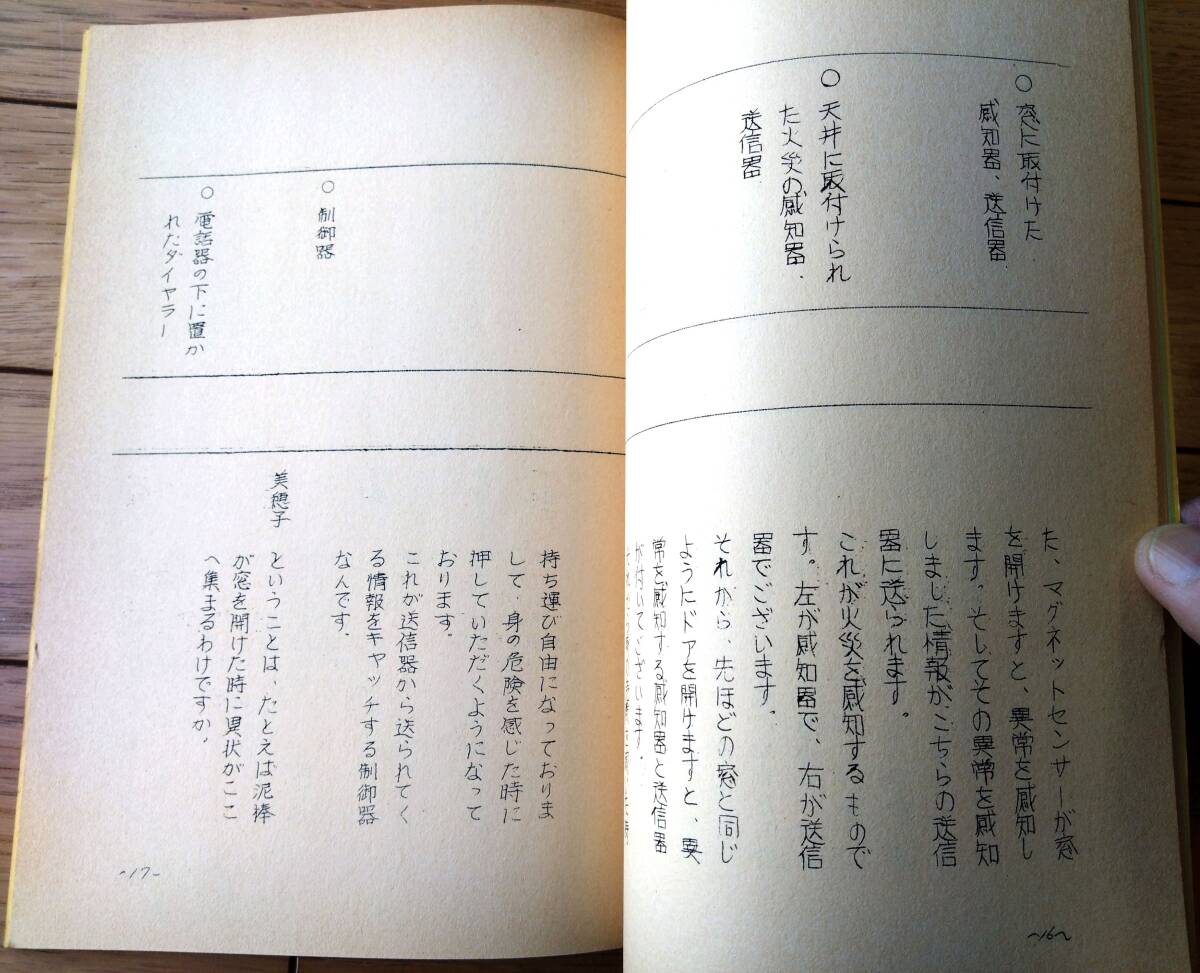 ○ 窓に取付けた
感知器、送信器
○ 天井に取付けられ
た火災の感知器.
送信器
た、マグネットセンサーが窓
を開けますと、異常を感知し
ます。そしてその異常を感知
しました情報がこちらの送信
器に送られます。
これが火災を感知するもので
す。左が感知器で、右が送信
器でございます。
それから、先ほどの窓と同じ
ようにドアを開けますと、異
常を感知する感知器と送信器
が付いてございます.
~16~
○ 制御器
○ 電話器の下に置か
れたダイヤラー
持ち運び自由になっておりま
して、身の危険を感じた時に
押していただくようになって
おります。
これが送信器から送られてく
る情報をキャッチする制御器
なんです.
美穂子
ということは、たとえば泥棒
が窓を開けた時に異状がここ
へ集まるわけですか.
~17-